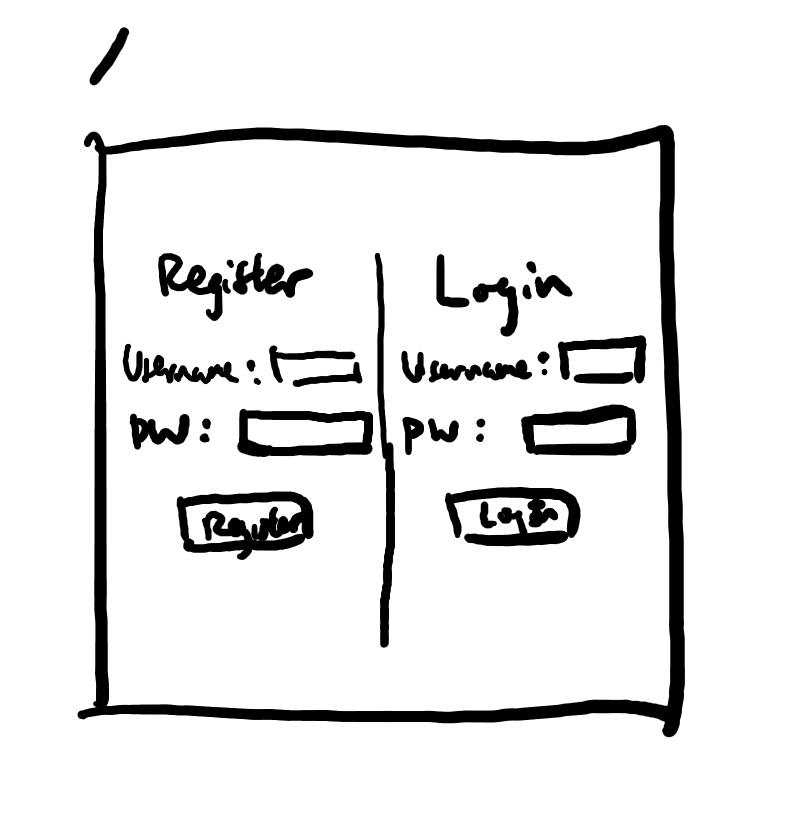 /
Register
Username:
PW:
Register
Login
Username:
PW:
Login